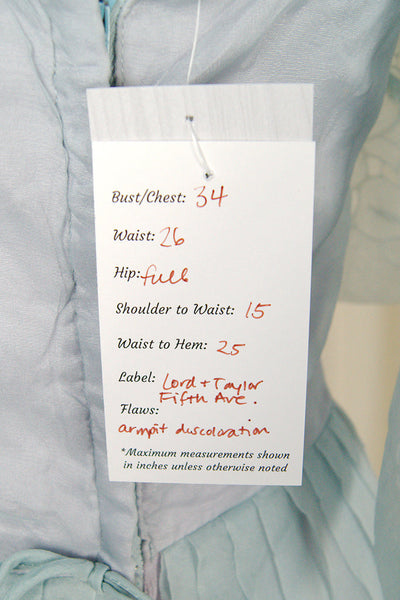 Bust/Chest: 34
Waist: 26
Hip: full
Shoulder to Waist: 15
Waist to Hem: 25
Label: Lord + Taylor
Fifth Ave.
Flaws:
armpit discoloration
*Maximum measurements shown
in inches unless otherwise noted